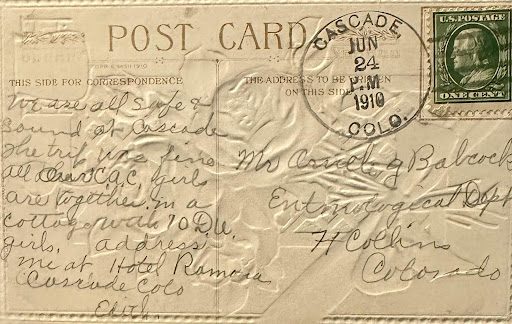 POST CARD
THIS SIDE FOR CORRESPONDENCE
THE ADDRESS TO BE WRITTEN
ON THIS SIDE
CASCADE,
JUN
24
P.M
1910
COLO.
U.S. POSTAGE
ONE CENT
We are all safe &
sound at Cascade
The trip was fine
all our C.A.C. girls
are together in a
cottage with 10 D.U.
girls, address
me at Hotel Ramona
Cascade Colo
Edith.
Mr Babcock
Entomological Dept
Ft Collins
Colorado